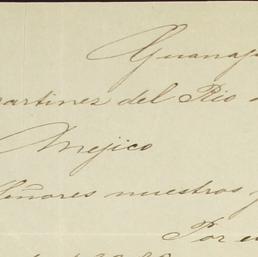 Guanaj
artinez del Rio
Mejico
Señores nuestros
Por e